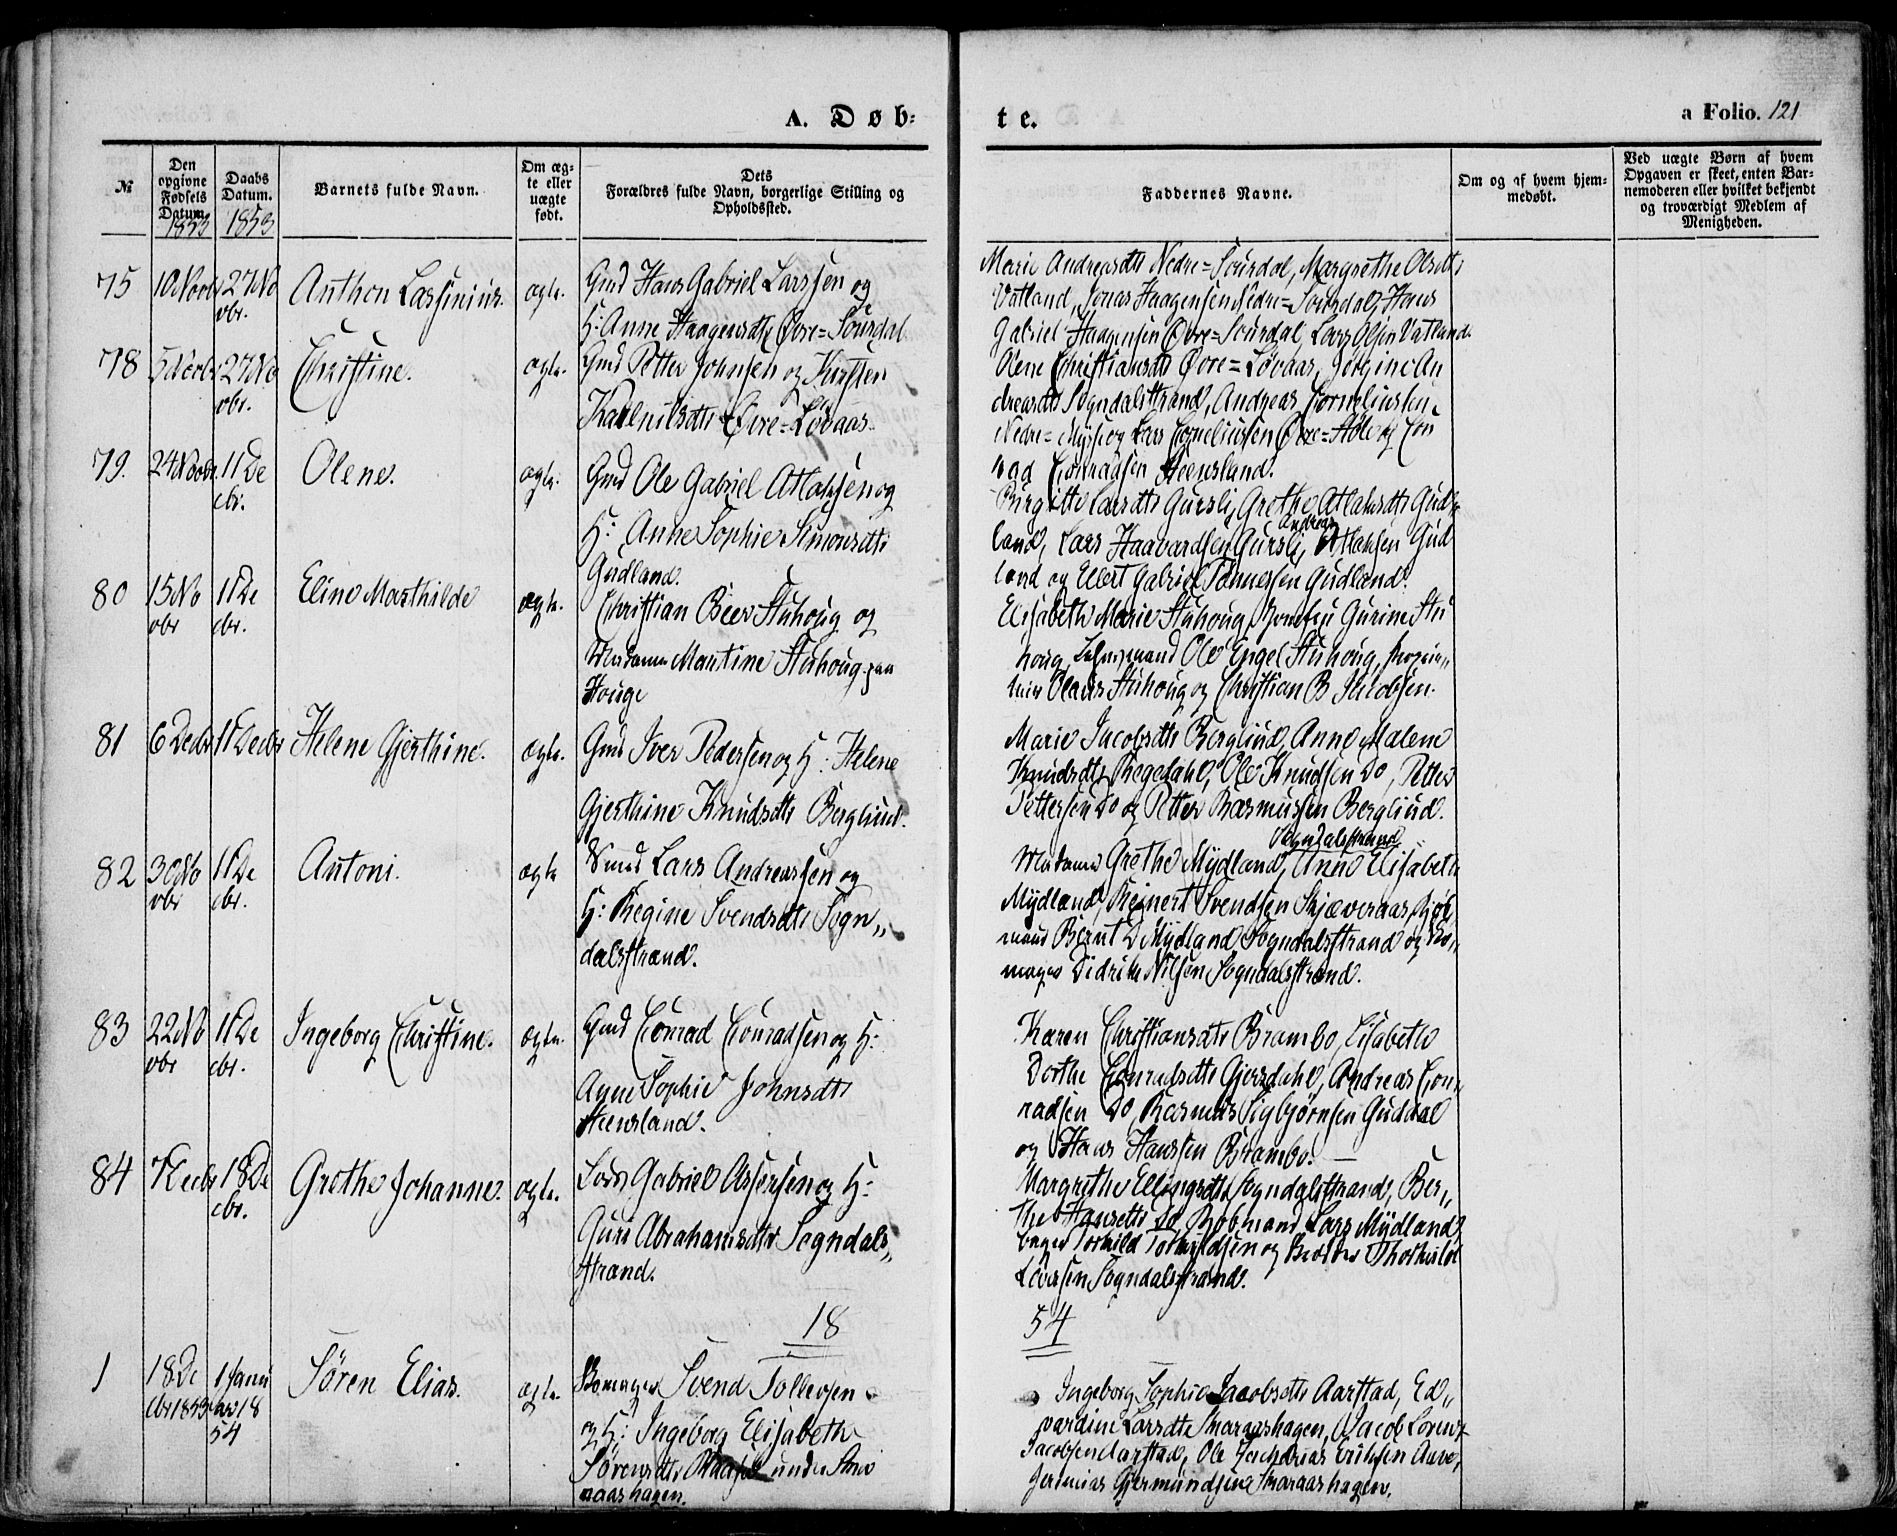 A. Døb-
te.
a Folio. 121
№
Den opgivne Fødsels Datum. 1853
Daabs Datum. 1853
Barnets fulde Navn.
Om æg-te eller uægte født.
Dets Forældres fulde Navn, borgerlige Stilling og Opholdssted.
Faddernes Navne.
Om og af hvem hjem-medøbt.
Ved uægte Børn af hvem Opgaven er skeet, enten Bar-nemoderen eller hvilket bekjendt og troværdigt Medlem af Menigheden.
75 10 Novbr 27 No
vbr.
Anthon Lassenius. ægte.
Gmd Hans Gabriel Larssen og
H: Anne Haagensdtr Øvre=Sourdal
Marie Andreasdtr Nedre=Sourdal, Margrethe Olsdtr
Vatland, Jonas Haagensen Nedre=Sourdal, Hans
Gabriel Haagensen Øvre=Sourdal, Lars Olsen Vatland.
78 27 No
vbr.
Christine. ægte.
Gmd Petter Johnsen og Kirsten
Øvre=Løvaas.
Olene Christiansdtr Øvre=Løvaas, Jørgine An
dreasdtr Sogndalsstrand, Andreas Corneliussen
Nedre= Lars Corneliussen Øvre= og Con
rad Conradsen Steensland.
79. 24 Novbr. 11 De
cbr.
Olene. ægte.
Gmd Ole Gabriel Atlaksen og
H: Anne Sophie Simonsdtr
Gudland.
Birgitte Larsdtr Gursli, Grethe Atlaksdtr Gud
Andreas
land, Lars Haavardsen Gursli, Atlaksen Gud
land og Ellert Gabriel Tønnessen Gudland.
80 15 No
vbr
11 De
cbr.
Eline Marthilde ægte.
Christian Beer Stuhoug og
Madame Martine Stuhoug paa
Houge
Elisabeth Marie Stuhoug, Jomfru Gurine Stu
houg, Lensmand Ole Engel Stuhoug,
Olaus Stuhoug og Christian B Jacobsen.
81 6 Decbr 11 Decbr
Helene Gjerthine. ægte.
Gmd Iver Pedersen og H: Helene
Gjerthine Knudsdtr Berglund.
Marie Jacobsdtr Berglund, Anne Malene
Knudsdtr Regedahl, Ole Knudsen Do, Petter
Pettersen Do og Petter Rasmussen Berglund.
82 30 No
vbr
11 De
cbr.
Antoni. ægte
Lars Andreassen og
H: Regine Svendsdtr Sogn„
dalsstrand.
Sogndalsstrand
Madame Grethe Mydland, Anne Elisabeth
Mydland, Reinert Svendsen Skjæveraas,
mand Bernt D Mydland Sogndalsstrand og Sko„
mager Didrik Nilsen Sogndalsstrand.
83 22 No
vbr
11 De
cbr.
Ingeborg Christine. ægte.
Gmd Conrad Conradsen og H:
Anne Sophie Johnsdtr
Steensland.
Karen Christiansdtr Brambo, Elisabeth
Dorthe Conradsdtr Gjersdahl, Andreas Con„
radsen Do, Rasmus Sigbjørnsen Guddal
og Hans Hanssen Brambo.
84 7 Decbr 18 De
cbr.
Grethe Johanne. ægte.
Lods Gabriel Assersen og H:
Guri Abrahamsdtr Sogndals„
strand.
Margrethe Ellingsdtr Sogndalsstrand, Ber„
the Hansdtr Do, Kobmand Lars Mydland,
Torkild Torkildsen og Thorkild
Sogndalsstrand.
18
54
1 18 De
cbr 1853
1 Janu
ar 18
54
Sören Elias. ægte.
Skomager Svend Tollevsen
og H: Ingeborg Elisabeth
Sørensdtr under Sma
raashagen.
Ingeborg Sophie Jacobsdtr Aarstad, Ed„
vardine Larsdtr Smaraashagen, Jacob Lorentz
Jacobsen Aarstad, Ole Zacharias Eriksen
Jeremias Gjermundsen Smaraashagen.